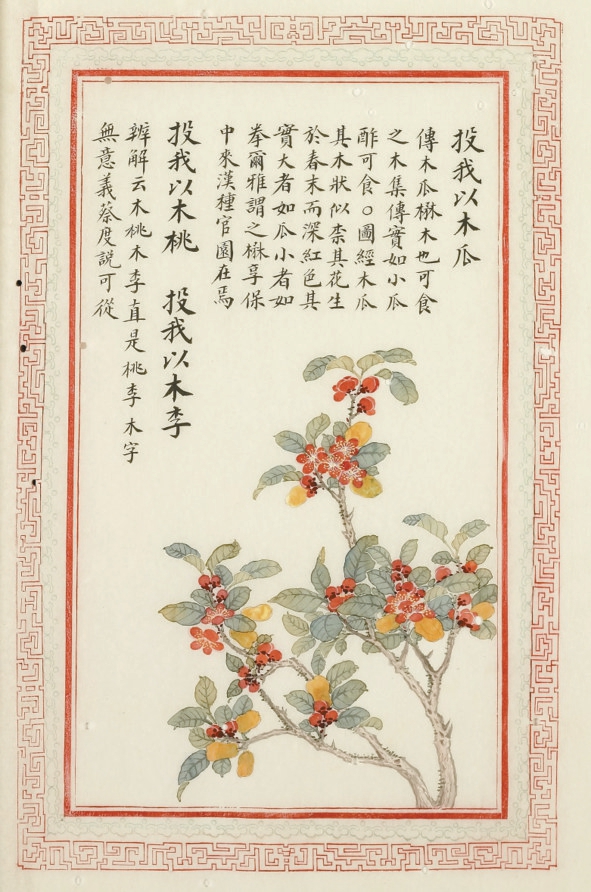 投我以木瓜
傳木瓜楙木也可食
之木集傳實如小瓜
酢可食○圖經木瓜
其木狀似柰其花生
於春末而深紅色其
實大者如瓜小者如
拳爾雅謂之楙享保
中來漢種官園在焉
投我以木桃　投我以木李
辨解云木桃木李直是桃李木字
無意義蔡度說可從